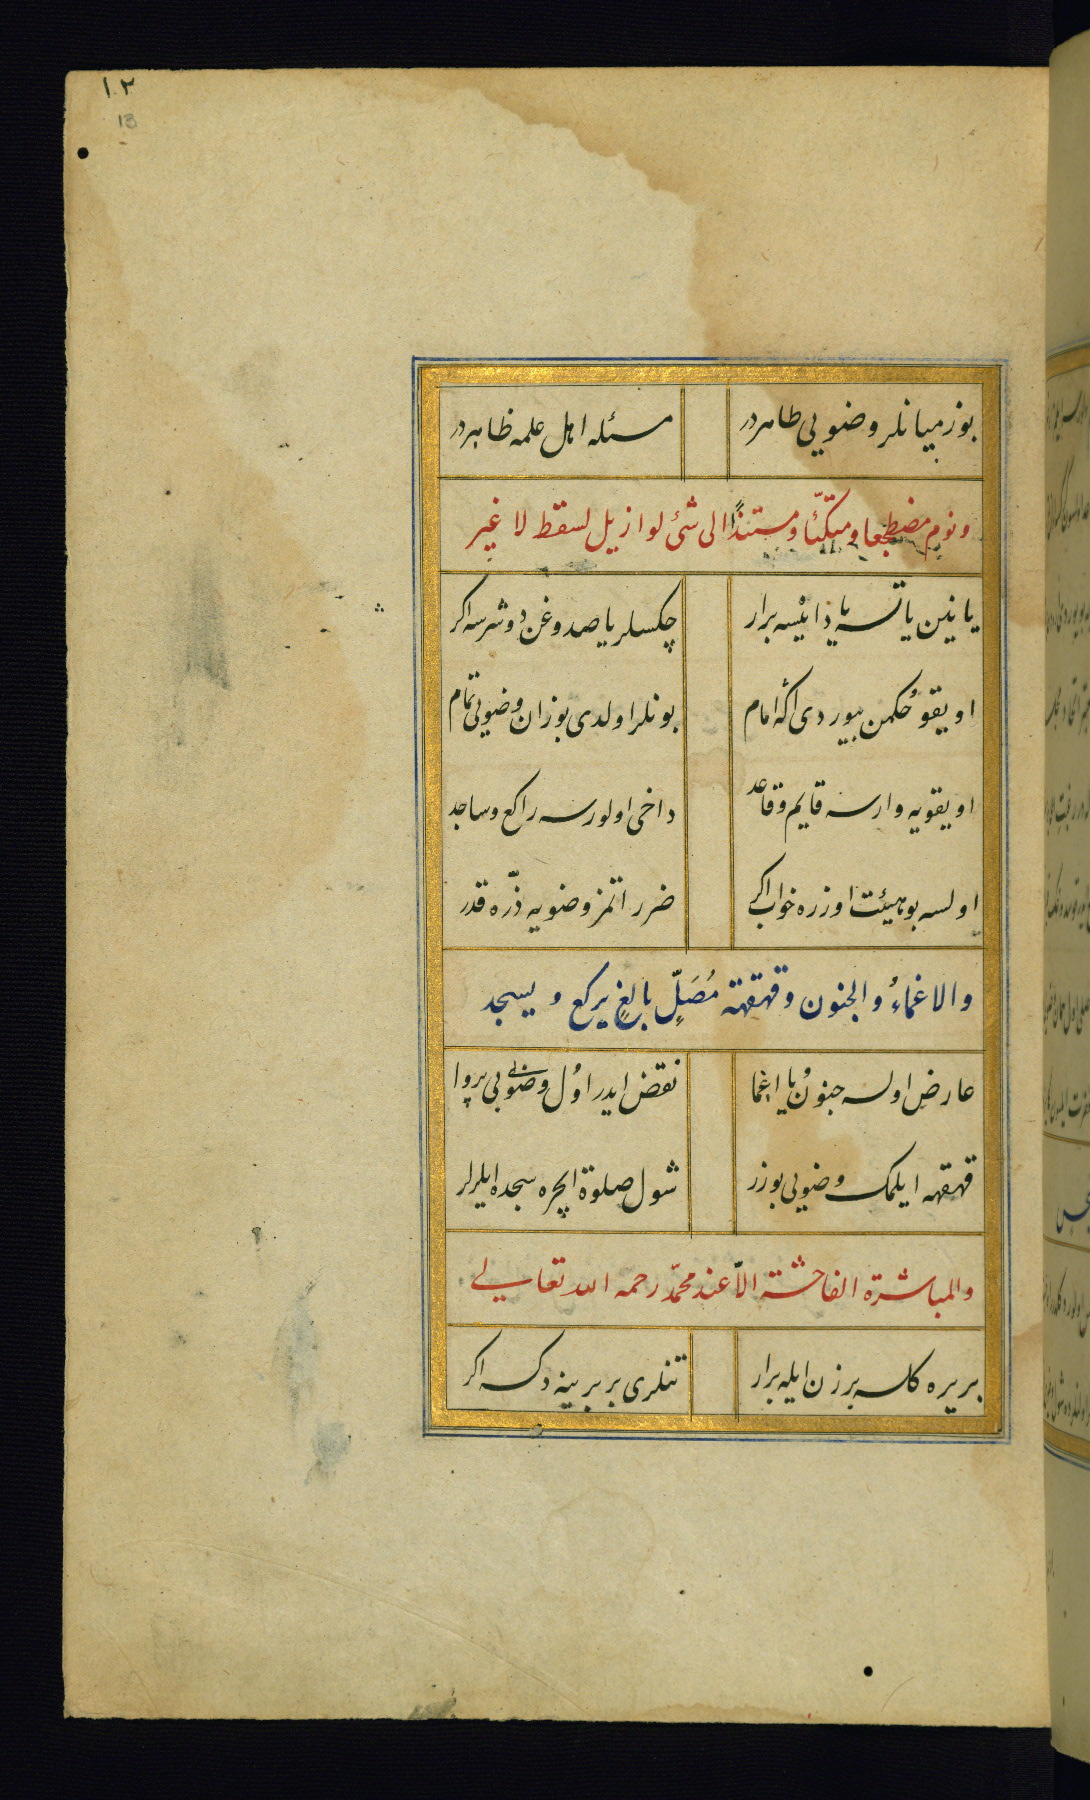 ١٣
13
بوزميانلر وضويى طاهردر مسئله اهل علمه ظاهردر
ونوم مضطجعا ومتكئا ومستندًا الى شئ لو ازيل لسقط لا غير
يا نين ياتسه يا دايسه برار چكسلر يا صدوغن دوشرسه اكر
اويقو حكمن بيوردى اكه امام بونلر اولدى بوزان وضويى تمام
اويقويه وارسه قايم وقاعد داخى اولورسه راكع وساجد
اولسه بو هيئت اوزره خواب اكر ضرر اتمز وضويه ذرّه قدر
والاغماءُ والجنون وقهقهة مُصَلٍّ بالغٍ يركع ويسجد
عارضِ اولسه جنونُ يا اغما نقض ايدر اوُل وضويى بى پروا
قهقهه ايلمك وضويى بوزر شول صلوة ايچره سجده ايلرلر
والمباشرة الفاحشة الاّ عند محمّد رحمه الله تعالى
بريره كلسه برزن ايله برار تنلرى بر برينه دكسه اكر